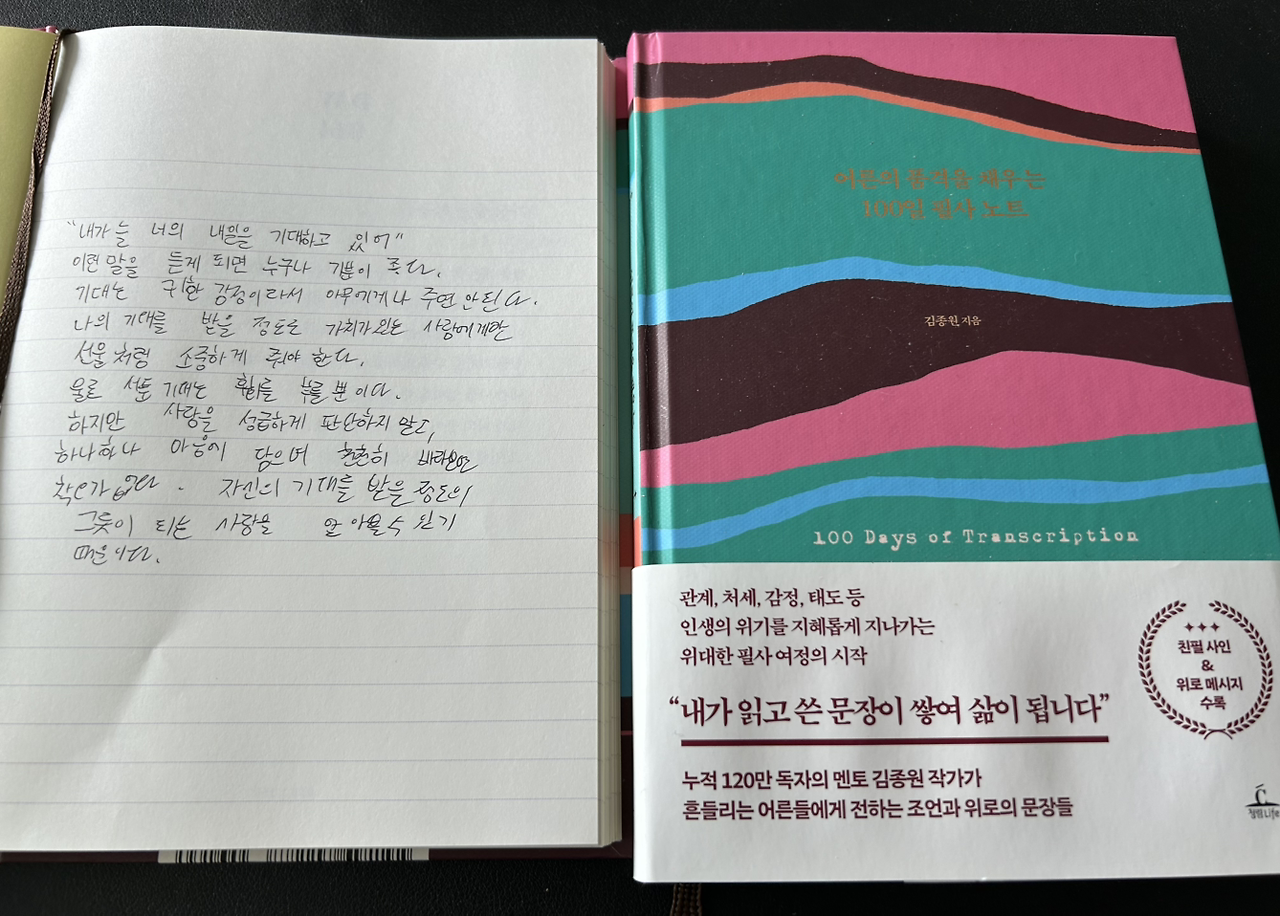 "내가 늘 너의 내일을 기대하고 있어"
이런 말을 듣게 되면 누구나 기분이 좋다.
기대는 귀한 감정이라서 아무에게나 주면 안된다.
나의 기대를 받을 정도로 가치가 있는 사람에게만
선물처럼 소중하게 줘야 한다.
섣부른 기대는 후회를 부를 뿐이다.
하지만 사람을 성급하게 판단하지 말고,
하나하나 마음에 담으며 천천히 바라보면
착오가 없다. 자신의 기대를 받을 정도의
그릇이 되는 사람을 알아볼 수 있기
때문이다.
어른의 품격을 채우는
100일 필사 노트
김종원 지음
100 Days of Transcription
관계, 처세, 감정, 태도 등
인생의 위기를 지혜롭게 지나가는
위대한 필사 여정의 시작
친필 사인
&
위로 메시지
수록
"내가 읽고 쓴 문장이 쌓여 삶이 됩니다"
누적 120만 독자의 멘토 김종원 작가가
흔들리는 어른들에게 전하는 조언과 위로의 문장들
청림Life